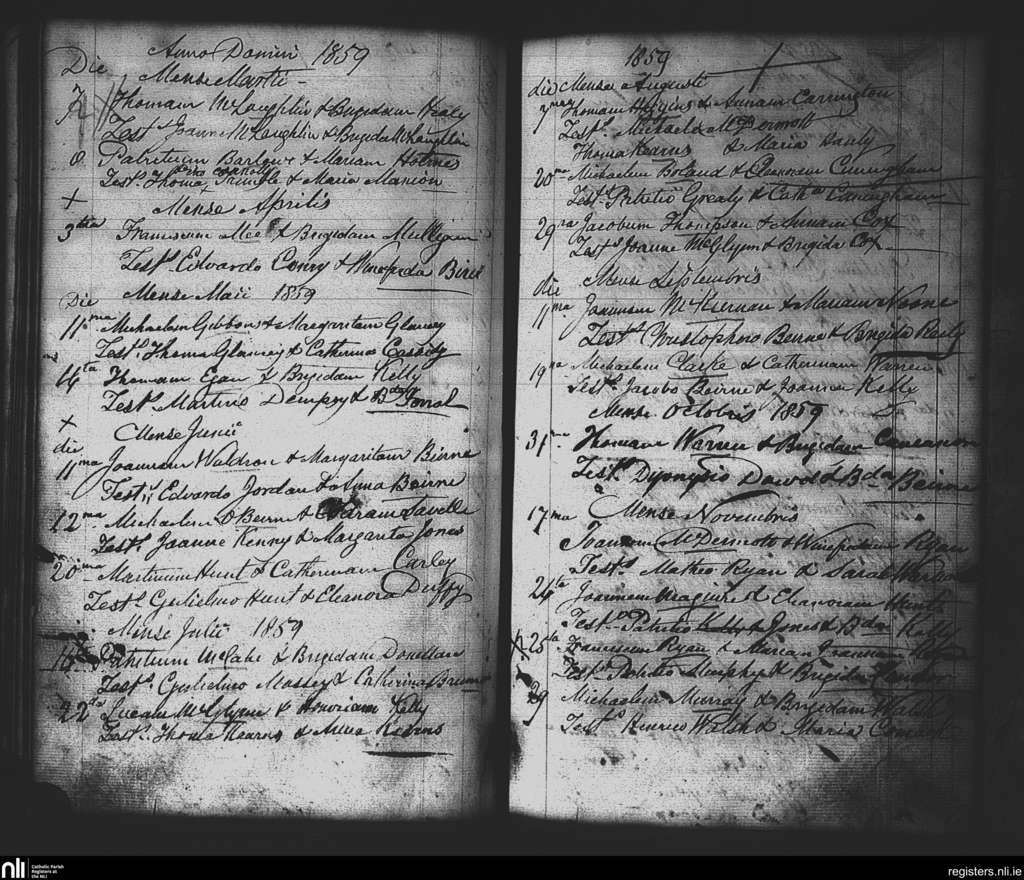 Anno Domini 1859
Die Mense Martii
7 Thomam McLoughlin & Brigidam Healy
Test.s Joanne McLoughlin & Brigida McLoughlin
8 Patritium Barlowe & Mariam Holmes
Test.s Thoma Trimble & Maria Manion
Mense Aprilis
3tia Franciscum Mee & Brigidam Mulligan
Test.s Edvardo Conry & Winefreda Birne
Mense Maii 1859
Die
11ma Michaelem Gibbons & Margaritam Glancy
Test.s Thoma Glancy & Catherina Cassidy
14ta Thomam Egan & Brigidam Kelly
Test.s Martino Dempsy & Bda
Mense Junii
die
11ma Joannem Waldron & Margaritam Beirne
Test.s Edvardo Jordan & Anna Beirne
12ma Michaelem O Beirne & Lavelle
Test.s Joanne Kenny & Margarita Jones
20ma Martinum Hunt & Catherinam Carley
Test.s Gulielmo Hunt & Eleanora Duffy
Mense Julii 1859
Patritium McCabe & Brigidam Donellan
Test.s Gulielmo Massey & Catherina
22da Lucam McGlynn & Honoriam Kelly
Test.s Thoma Kearns & Kearns
1859
die Mense Augusti
7ma Thomam Higgins & Annam Carrington
Test.s Michaele McDermott
Thoma Kearns & Maria
20ma Michaelem Boland & Eleanoram Cuningham
Test.s Patritio Grealy & Catha Cuningham
29na Jacobum Thompson & Annam Cox
Test.s Joanne McGlynn & Brigida Cox
Mense Septembris
die
11ma Joannem McKiernan & Mariam Noone
Test.s Christophoro Beirne & Brigida Reilly
19na Michaelem Clarke & Catherinam Warren
Test.s Jacobo Beirne & Joanna Kelly
Mense Octobris 1859
31ma Thomam Warren & Brigidam
Test.s Dyonysio Dowd & Bda Beirne
Mense Novembris
17ma
Joannem McDermott & Winefridam Ryan
Test.s Matheo Ryan & Sara
24ta Joannem Maguire & Eleanoram
Test.s Patritio Jones & Bda Kelly
25ta Franciscum Ryan & Mariam
Test.s Patritio Murphy & Brigida
29 Michaelem Murray & Brigidam Walsh
Test.s Henrico Walsh & Maria
nli Catholic Parish
Registers at
the NLI
registers.nli.ie